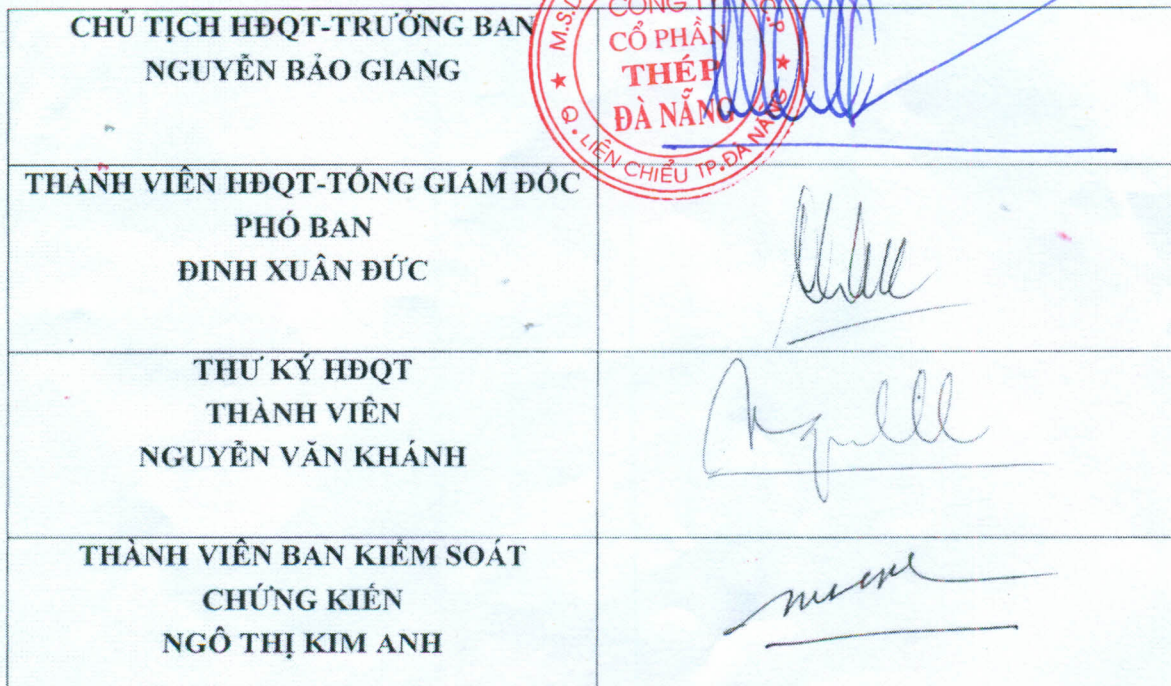 CHỦ TỊCH HĐQT-TRƯỞNG BAN
NGUYỄN BẢO GIANG
CÔNG T
C.P
M.S.D
CỔ PHẦN
THÉP
ĐÀ NẴNG
Q. LIÊN CHIỂU TP.ĐÀ NẴNG
THÀNH VIÊN HĐQT-TỔNG GIÁM ĐỐC
PHÓ BAN
ĐINH XUÂN ĐỨC
THƯ KÝ HĐQT
THÀNH VIÊN
NGUYỄN VĂN KHÁNH
THÀNH VIÊN BAN KIỂM SOÁT
CHỨNG KIẾN
NGÔ THỊ KIM ANH